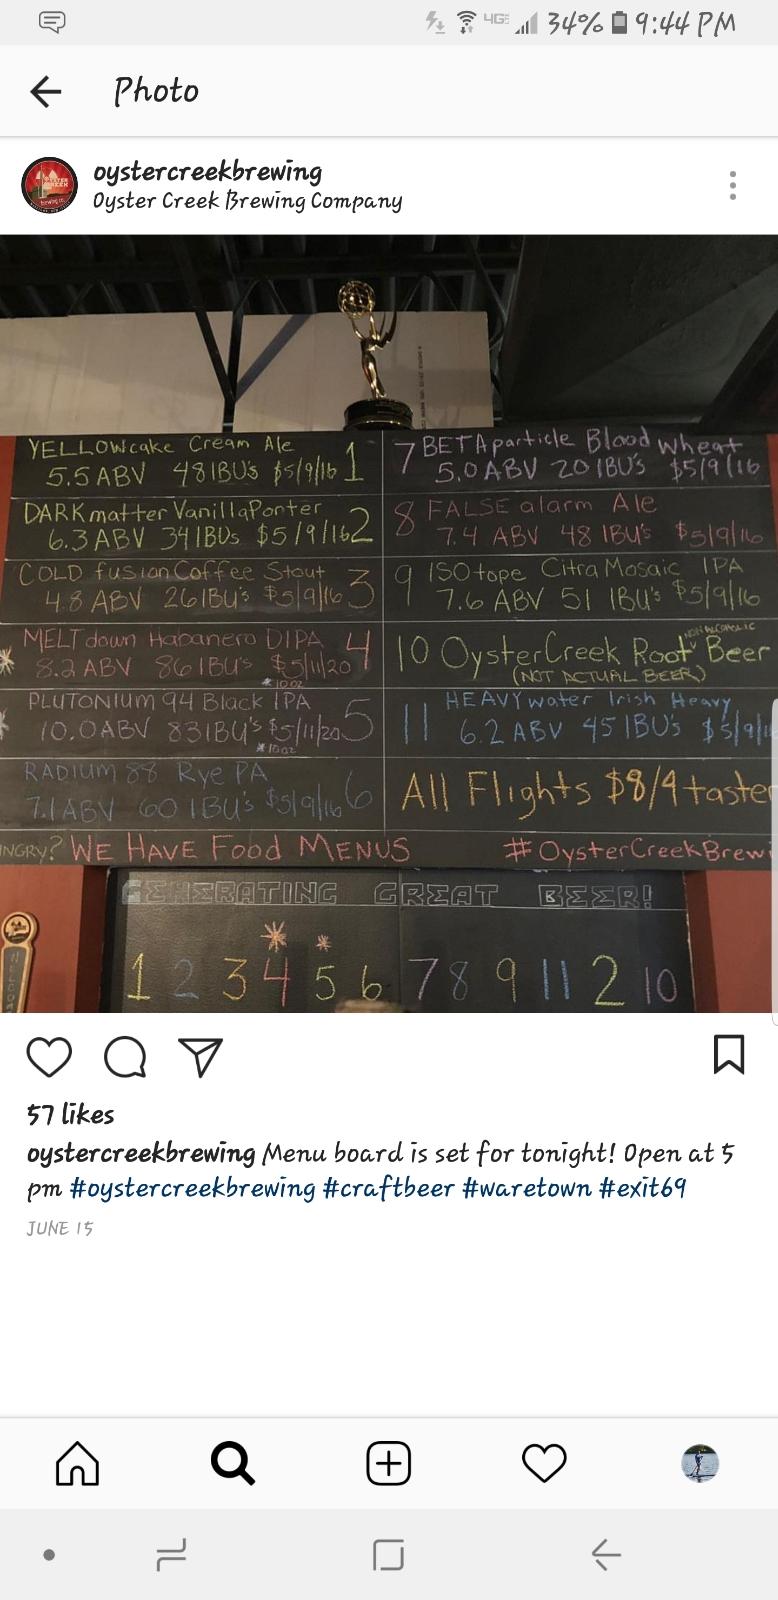 4G 34% 9:44 PM
Photo
oystercreekbrewing
Oyster Creek Brewing Company
YELLOWcake Cream Ale
5.5 ABV 48 IBU's $5/9/16 1
DARKmatter Vanilla Porter
6.3 ABV 34 IBUs $5/9/16 2
COLD fusion Coffee Stout
4.8 ABV 26 IBU's $5/9/16 3
MELTdown Habanero DIPA 4
8.2 ABV 86 IBU's $5/11/20
*10oz
PLUTONIUM 94 Black IPA
10.0 ABV 83 IBU's $5/11/20 5
*10oz
RADIUM 88 Rye PA
7.1 ABV 60 IBU's $5/9/16 6
7 BETAparticle Blood Wheat
5.0 ABV 20 IBU'S $5/9/16
8 FALSE alarm Ale
7.4 ABV 48 IBU's $5/9/16
9 ISOtope Citra Mosaic IPA
7.6 ABV 51 IBU's $5/9/16
NON ALCOHOLIC
10 OysterCreek Root Beer
(NOT ACTUAL BEER)
HEAVYwater Irish Heavy
11 6.2 ABV 45 IBU's $5/9/1
All Flights $8/4 taster
NGRY? WE HAVE Food MENUS #OysterCreekBrewi
GENERATING GREAT BEER!
1 2 3 4 5 6 7 8 9 11 2 10
57 likes
oystercreekbrewing Menu board is set for tonight! Open at 5
pm #oystercreekbrewing #craftbeer #waretown #exit69
JUNE 15